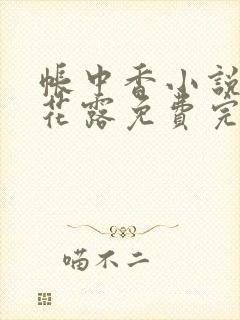 帳中香小說
花露免費完
喵不二